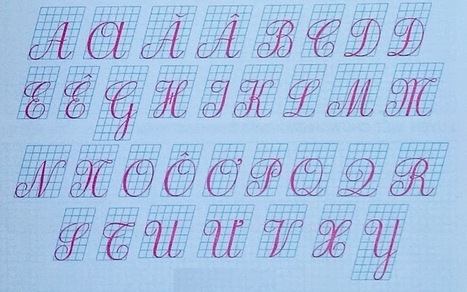 A A Ă Â B C D Đ
E Ê G H I K L M M
N N O Ô Ơ P Q Q R
S T U Ư V X Y